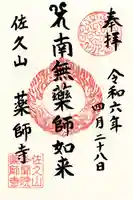 奉拝
令和六年四月二十八日
南無薬師如来
佐久山
薬師寺